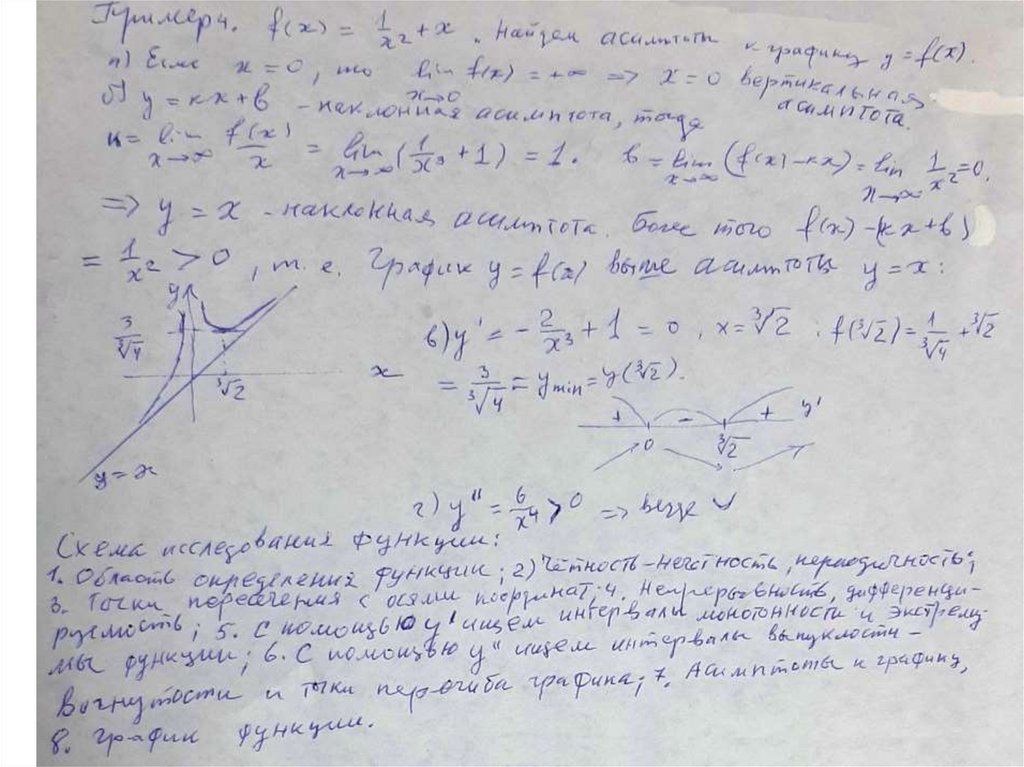 Пример 4. f(x) = 1/x² + x. Найдем асимптоты к графику y = f(x).
а) Если x = 0, то lim x→0 f(x) = +∞ => x = 0 вертикальная асимптота.
б) y = kx + b - наклонная асимптота, тогда
k = lim x→∞ f(x)/x = lim x→∞ (1/x³ + 1) = 1. b = lim x→∞ (f(x) - kx) = lim x→∞ 1/x² = 0.
=> y = x - наклонная асимптота. Более того f(x) - (kx + b)
= 1/x² > 0, т.е. график y = f(x) выше асимптоты y = x:
y
3/∛4
∛2
x
y = x
в) y' = -2/x³ + 1 = 0, x = ∛2. f(∛2) = 1/∛4 + ∛2
= 3/∛4 = y min = y(∛2).
+ - + y'
0 ∛2
г) y'' = 6/x⁴ > 0 => везде ∨
Схема исследования функции:
1. Область определения функции; 2) Чётность-нечётность, периодичность;
3. Точки пересечения с осями координат; 4. Непрерывность, дифференци-
руемость; 5. С помощью y' ищем интервалы монотонности и экстрему-
мы функции; 6. С помощью y'' ищем интервалы выпуклости-
вогнутости и точки перегиба графика; 7. Асимптоты к графику,
8. График функции.